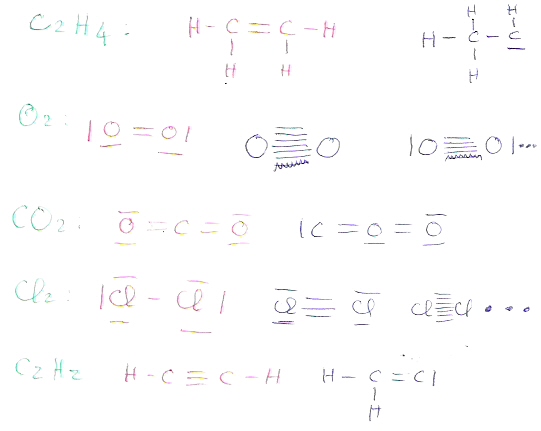 C2H4: H-C=C-H H H H H H-C-C H
O2: |O=O| O≡O |O≡O|...
CO2: O=C=O |C=O=O
Cl2: |Cl-Cl| Cl≡Cl Cl≡Cl...
C2H2 H-C≡C-H H-C=C| H